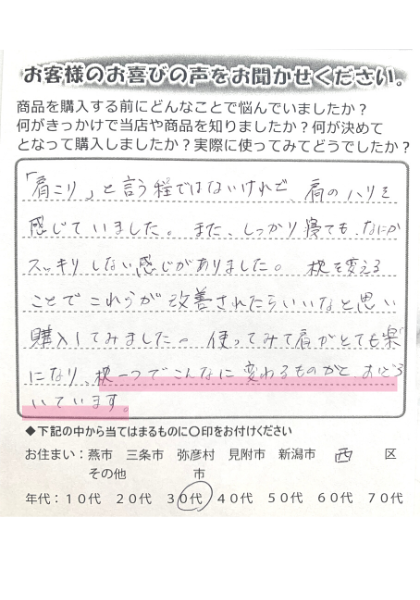 お客様のお喜びの声をお聞かせください。
商品を購入する前にどんなことで悩んでいましたか？
何がきっかけで当店や商品を知りましたか？何が決めて
となって購入しましたか？実際に使ってみてどうでしたか？
「肩こり」と言う程ではないけれど、肩のハリを
感じていました。また、しっかり寝ても、なにか
スッキリしない感じがありました。枕を変える
ことでこれらが改善されたらいいなと思い
購入してみました。使ってみて肩がとても楽
になり、枕一つでこんなに変わるものかと おどろ
いています。
◆下記の中から当てはまるものに〇印をお付けください
お住まい：燕市 三条市 弥彦村 見附市 新潟市 西 区
その他 市
年代：１０代 ２０代 ３０代 ４０代 ５０代 ６０代 ７０代